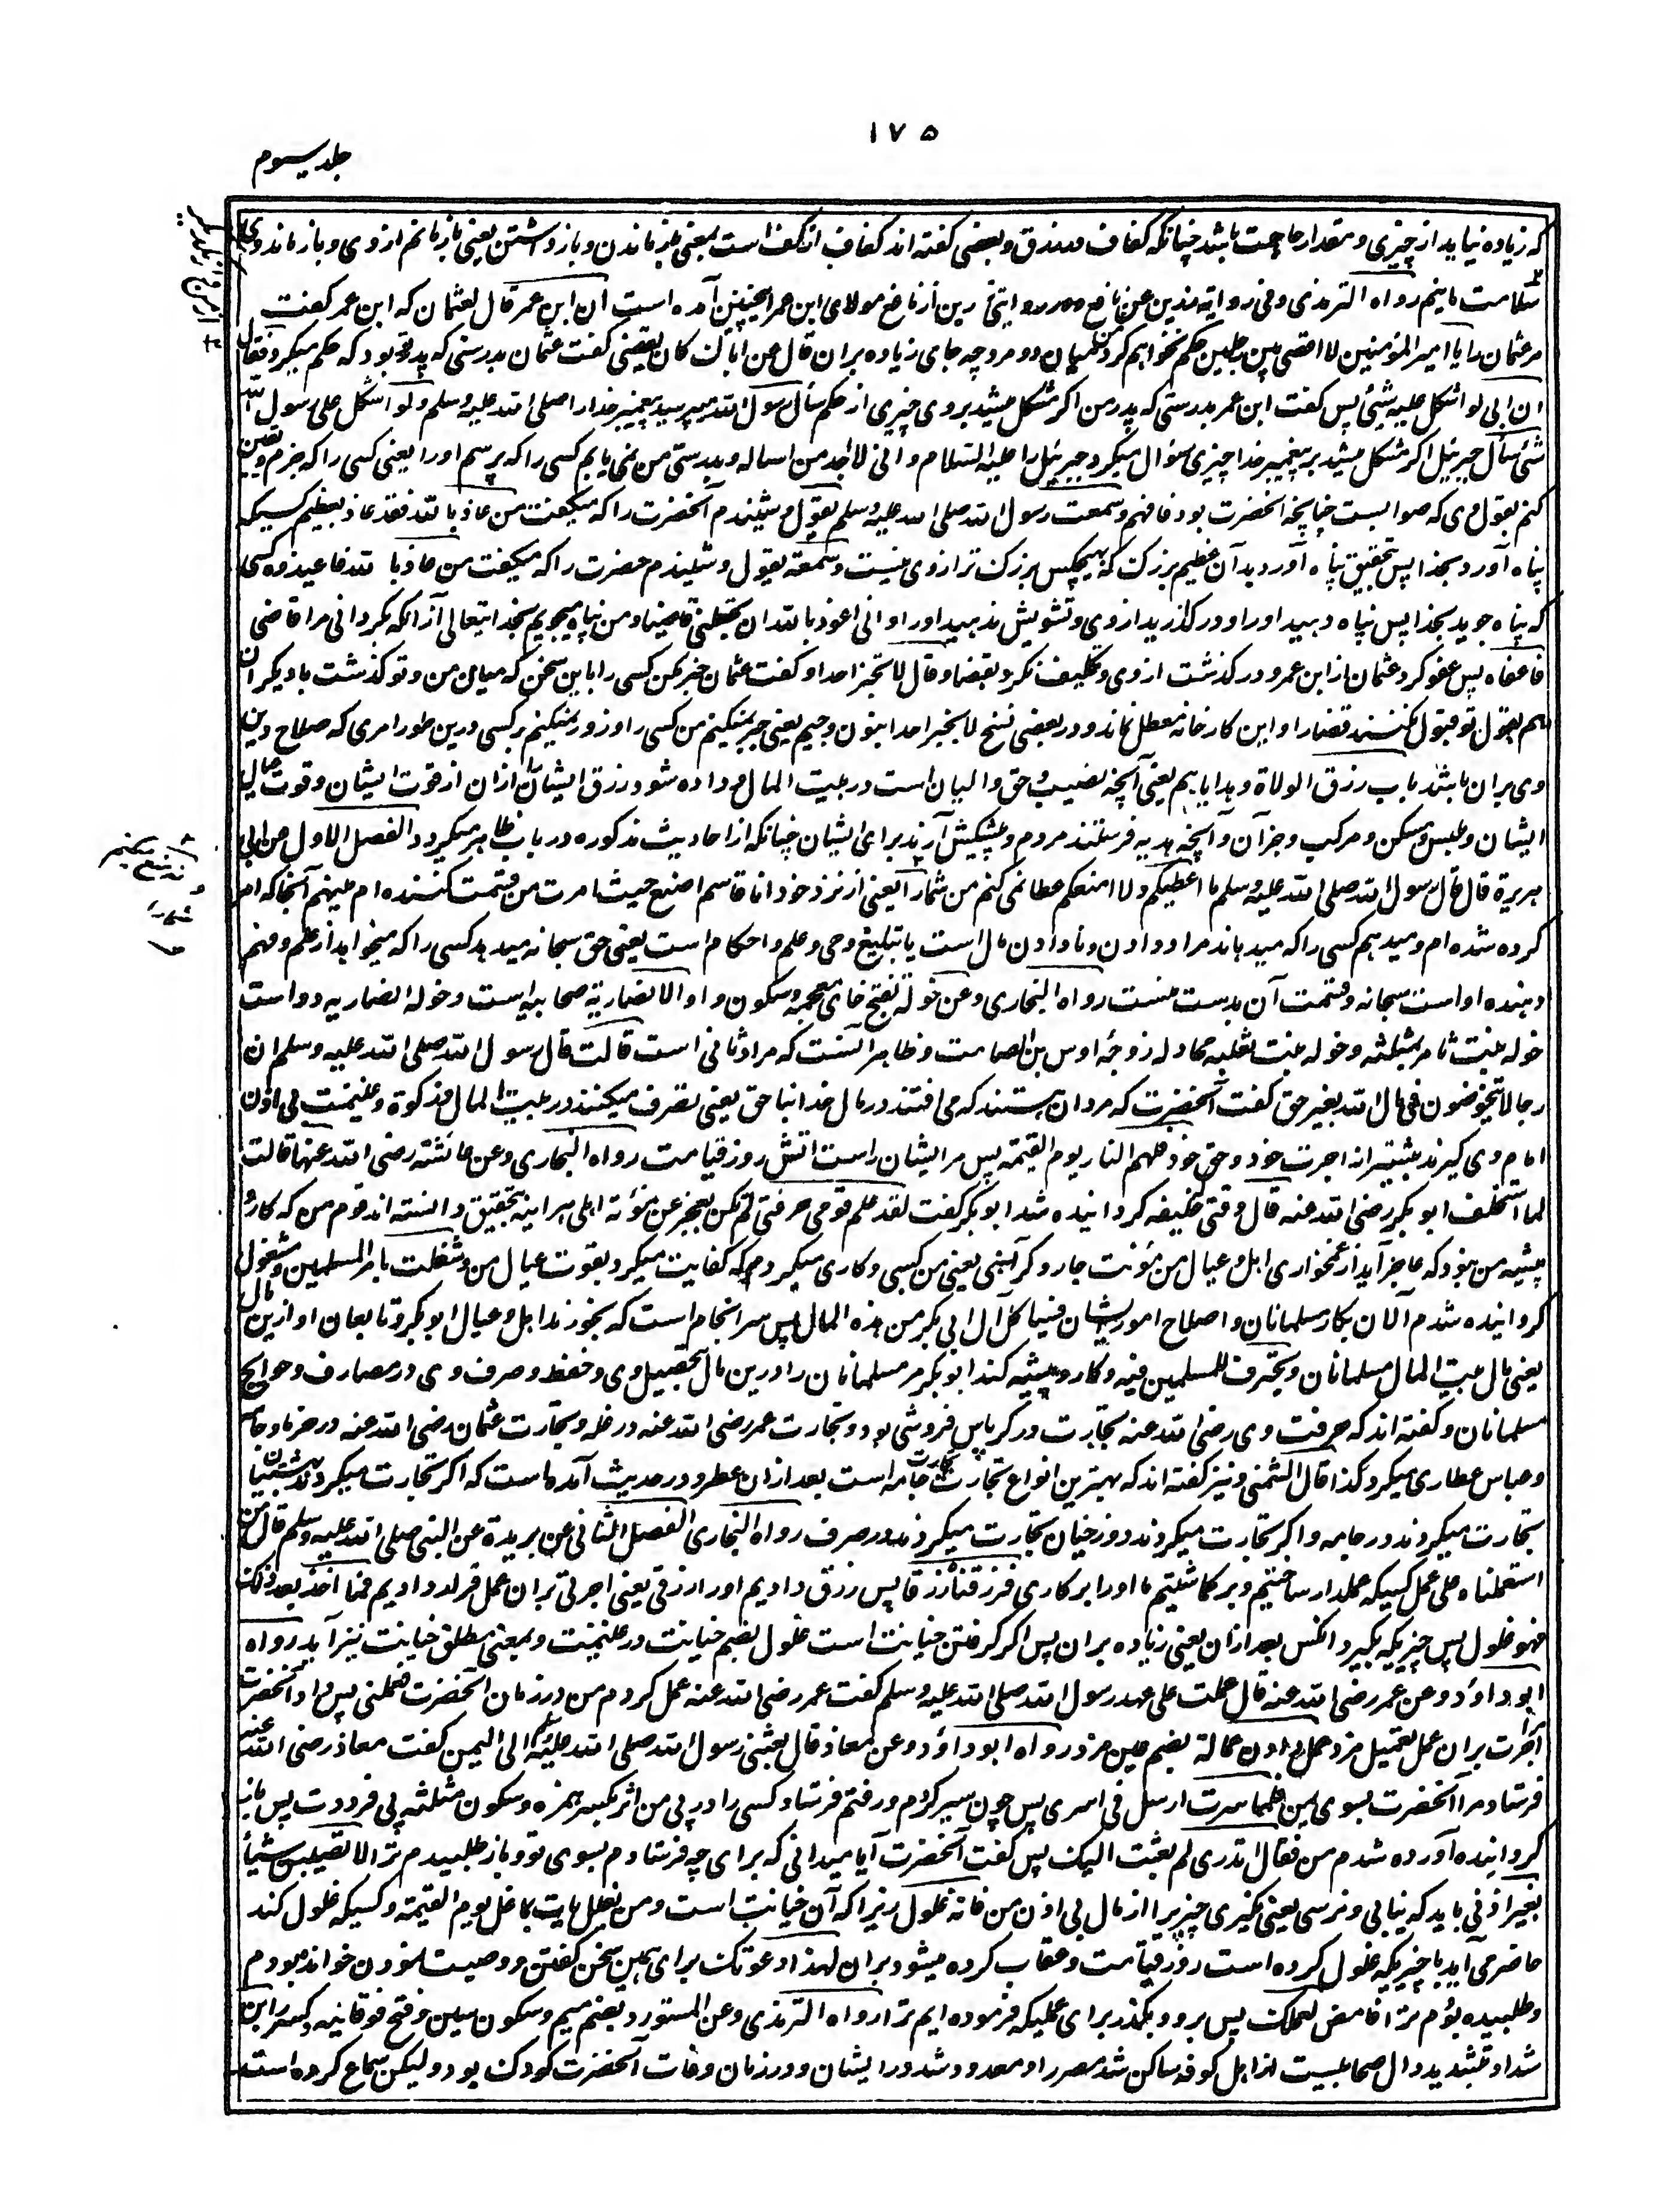 ۱۷۵
جلد سوم
که زیاده نیاید از چیزی و مقدار حاجت باشد چنانکه کفاف و بعضی گفته اند کفاف از کف است بمعنی باز ماندن و باز داشتن یعنی باز مانم از وی و باز ماند وی
سلامت مانیم رواه الترمذی و فی روایة رزین عن نافع و در روایتی رزین از نافع مولای ابن عمر اینچنین آمده است ان ابن عمر قال لعثمان که ابن عمر گفت
مر عثمان را یا امیر المؤمنین لا اقضی بین رجلین حکم نخواهم کرد میان دو مرد چه جای زیاده بران قال من اباک کان یقضی گفت عثمان بدرستی که پدر تو بود که حکم میکرد فقال
ان ابی لو اشکل علیه شیئ پس گفت ابن عمر بدرستی که پدر من اگر مشکل میشد بر وی چیزی از حکم سأل رسول الله میپرسید پیغمبر خدا را صلی الله علیه وسلم ولو اشکل علی رسول الله
شئ سأل جبرئیل اگر مشکل میشد بر پیغمبر خدا چیزی سؤال میکرد جبرئیل را علیه السلام و انی لا اجد من اساله و بدرستی من نمی یابم کسی را که پرسم او را یعنی کسی را که جزم و یقین
کنم بقول وی که صوابست چنانچه آنحضرت بود فافهم و سمعت رسول الله صلی الله علیه وسلم یقول و شنیدم آنحضرت را که میگفت من عاذ بالله فقد عاذ بعظیم کسیکه
پناه آورد بخدا پس تحقیق پناه آورد بدان عظیم بزرگ که هیچکس بزرگ تر از وی نیست و سمعته یقول و شنیدم حضرت را که میگفت من عاذ بالله فاعیذوه کسی
که پناه جوید بخدا پس پناه دهید او را و در گذرید از وی و تشویش ندهید او را و انی اعوذ بالله ان تجعلنی قاضیا و من پناه میجویم بخدایتعالی از آنکه گردانی مرا قاضی
فاعفاه پس عفو کرد عثمان از ابن عمر و در گذشت از وی و تکلیف نکرد بقضا و قال لا تخبر احدا و گفت عثمان خبر مکن کسی را باین سخن که میان من و تو گذشت با دیگران
هم بقول تو قبول نکنند قضا را و این کارخانه معطل ماند و در بعضی نسخ لا نجبر احدا بنون و جیم یعنی جبر نمیکنم من کسی را و زور نمیکنم بر کسی درین طور امری که صلاح دین
وی بران باشد باب رزق الولاة و هدایاهم یعنی آنچه نصیب و حق والیان است در بیت المال و داده شود رزق ایشان ازان از قوت ایشان و قوت عیال
ایشان و ملبس و مسکن و مرکب و جز آن و آنچه هدیه فرستند مردم و پیشکش آرند برای ایشان چنانکه از احادیث مذکوره در باب ظاهر میگردد الفصل الاول عن ابی
هریرة قال قال رسول الله صلی الله علیه وسلم ما اعطیکم ولا امنعکم عطا نمی کنم من شما را یعنی از نزد خود انا قاسم اضع حیث امرت من قسمت کننده ام مینهم آنجا که امر
کرده شده ام و میدهم کسی را که میدهاند مرا و دادن و نادادن مال است یا تبلیغ وحی و علم و احکام است یعنی حق سبحانه میدهد کسی را که میخواهد از علم و فهم
دهنده او است سبحانه و قسمت آن بدست منست رواه البخاری و عن خولة بفتح خای معجمه و سکون واو الانصاریة صحابیه است و خوله انصاریه دو است
خوله بنت ثامر بمثلثه و خوله بنت ثعلبه مجادله زوجه اوس بن الصامت و ظاهر آنست که مراد ثانی است قالت قال رسول الله صلی الله علیه وسلم ان
رجالا یتخوضون فی مال الله بغیر حق گفت آنحضرت که مردان هستند که می افتند در مال خدا بناحق یعنی تصرف میکنند در بیت المال و زکوة و غنیمت بی اذن
امام و می گیرند بیشتر از اجرت خود و حق خود فلهم النار یوم القیمة پس مر ایشان راست آتش روز قیامت رواه البخاری و عن عائشة رضی الله عنها قالت
لما استخلف ابو بکر رضی الله عنه قال وقتی خلیفه گردانیده شد ابو بکر گفت لقد علم قومی حرفتی لم تکن تعجز عن مؤنة اهلی هر اینه بتحقیق دانسته اند قوم من که کار و
پیشه من نبود که عاجز آید از غمخواری اهل و عیال من مؤنت جار و گرانی یعنی من کسبی و کاری میکردم که کفایت میکرد بقوت عیال من و شغلت بامر المسلمین و مشغول
گردانیده شدم الآن بکار مسلمانان و اصلاح امور ایشان فسیأکل آل ابی بکر من هذه المال پس سرانجام است که بخورند اهل و عیال ابو بکر و تابعان او ازین مال
یعنی مال بیت المال مسلمانان و یحترف للمسلمین فیه و کار و پیشه کند ابو بکر مر مسلمانان را درین مال بتحصیل وی و حفظ و صرف وی در مصارف و حوائج
مسلمانان و گفته اند که حرفت وی رضی الله عنه تجارت در کرباس فروشی بود و تجارت عمر رضی الله عنه در غله و تجارت عثمان رضی الله عنه در خرما و جامه
و عباس عطاری میکرد کذا قال الشمنی و نیز گفته اند که بهترین انواع تجارت تجارت جامه است بعد ازان عطر و در حدیث آمده است که اگر تجارت میکردند بهشتیان
تجارت میکردند در جامه و اگر تجارت میکردند دوزخیان تجارت میکردند در صرف رواه البخاری الفصل الثانی عن بریدة عن النبی صلی الله علیه وسلم قال من
استعملناه علی عمل کسیکه عملدار ساختیم و بر گماشتیم ما او را بر کاری فرزقناه رزقا پس رزق دادیم او را رزقی یعنی اجرتی بران عمل قرار دادیم فما اخذ بعد ذلک
فهو غلول پس چیزیکه بگیرد آنکس بعد ازان یعنی زیاده بران پس اگر گرفتن خیانت است غلول بضم خیانت در غنیمت و بمعنی مطلق خیانت نیز آید رواه
ابو داؤد و عن عمر رضی الله عنه قال عملت علی عهد رسول الله صلی الله علیه وسلم گفت عمر رضی الله عنه عمل کردم من در زمان آنحضرت فعملنی پس داد آنحضرت
اجرت بران عمل تعمیل مزد عمل دادن عمالة بضم عین مزد رواه ابو داؤد و عن معاذ قال بعثنی رسول الله صلی الله علیه وسلم الی الیمن گفت معاذ رضی الله عنه
فرستاد مرا آنحضرت بسوی یمن فلما سرت ارسل فی اثری پس چون سیر کردم و رفتم فرستاد کسی را در پی من اثر بکسر همزه و سکون مثلثه پی فرددت پس باز
گردانیده آورده شدم من فقال اتدری لم بعثت الیک پس گفت آنحضرت آیا میدانی که برای چه فرستادم بسوی تو و باز طلبیدم ترا لا تصیبن شیأ
بغیر اذنی باید که نیابی و نرسی یعنی نگیری چیزیرا از مال بی اذن من فانه غلول زیرا که آن خیانت است و من یغلل یات بما غل یوم القیمة و کسیکه غلول کند
حاضر می آید با چیزیکه غلول کرده است روز قیامت و عقاب کرده میشود بران لهذا دعوتک برای همین سخن گفتن و وصیت نمودن خوانده بودم
و طلبیده بودم ترا فامض لعملک پس برو و بگذر برای عملیکه فرموده ایم ترا رواه الترمذی و عن المستورد بضم میم و سکون سین و فتح فوقانیه و کسر را بن
شداد بتشدید دال صحابیست از اهل کوفه ساکن شد مصر را و معدود شد در ایشان و در زمان وفات آنحضرت کودک بود و لیکن سماع کرده است